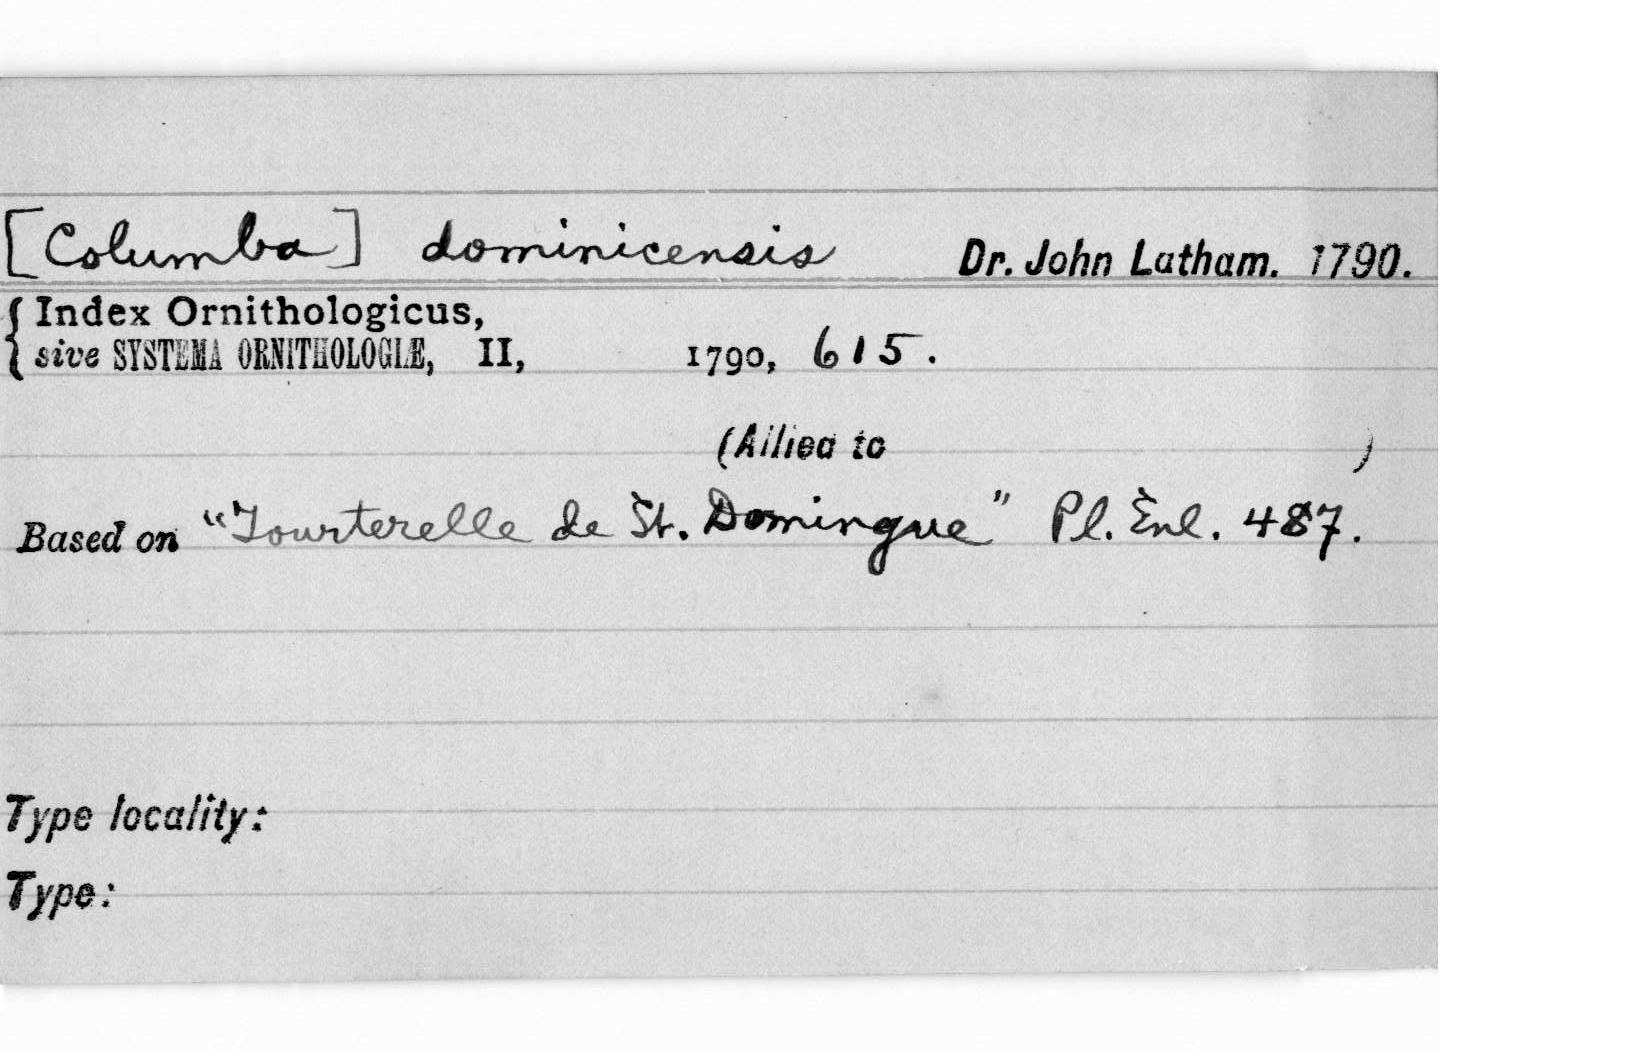 [Columba] dominicensis Dr. John Latham. 1790.
Index Ornithologicus,
sive SYSTEMA ORNITHOLOGIÆ, II, 1790, 615.
(Allied to )
Based on "Tourterelle de St. Domingue" Pl. Enl. 487.
Type locality:
Type: